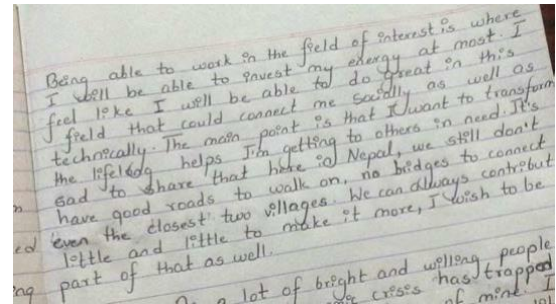 Being able to work in the field of interest is where
I will be able to invest my energy at most. I
feel like I will be able to do great in this
field that could connect me socially as well as
technically. The main point is that I want to transform
the helps I'm getting to others in need. It's
sad to share that here in Nepal, we still don't
have good roads to walk on, no bridges to connect
even the closest two villages. We can always contribut
little and little to make it more, I wish to be
part of that as well.
a lot of bright and willing people
crisis has trapped